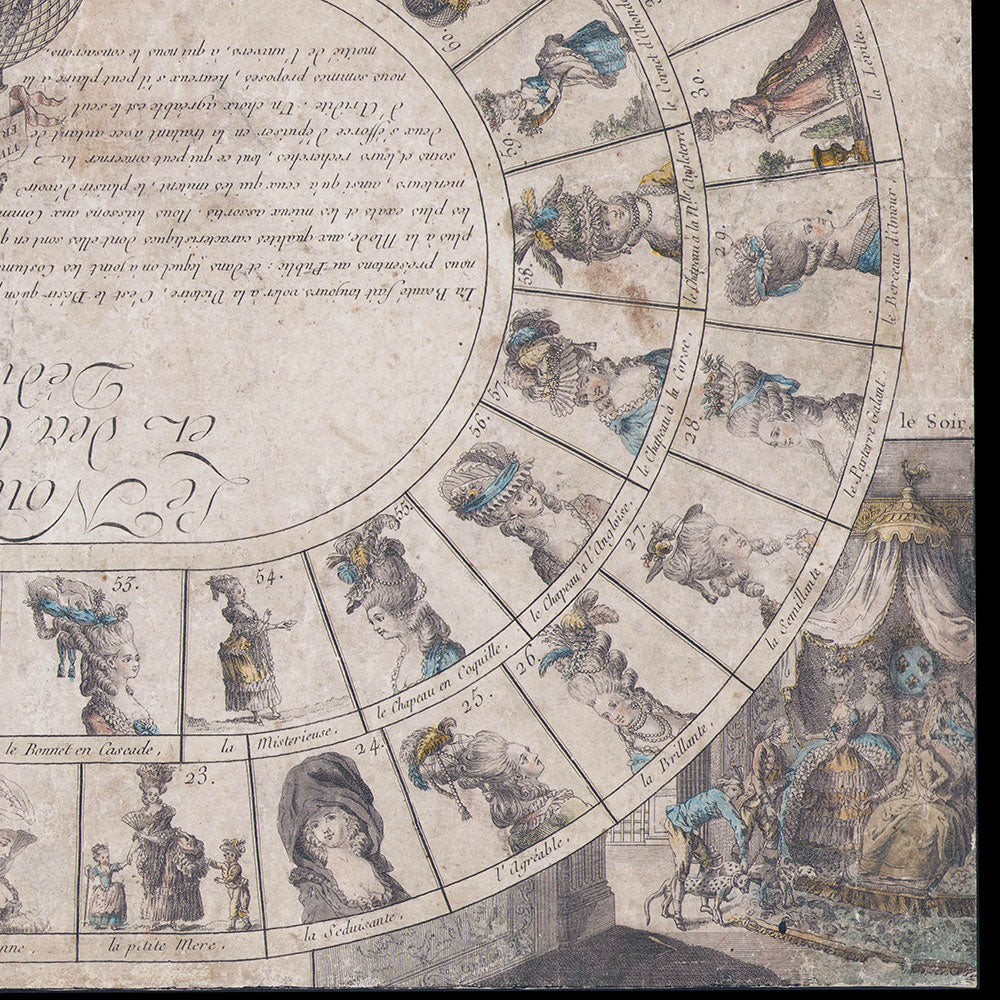 Le Nou
et des C
Dédi
La Beauté fait toujours voler à la Victoire, C'est le Désir qu'on
nous présentons au Public: et dans lequel on a joint les Costum
plus à la Mode, aux qualités caractéristiques dont elles sont en
les plus exats et les mieux assortis. Nous laissons aux Comm
menteurs, ainsi qu'à ceux qui les imitent, le plaisir d'avoir
soins et leurs recherches, tout ce qui peut concerner la
deux s'efforce d'épuiser en la traitant avec autant de
d'Aridité. Un choix agréable est le seul
nous sommes proposés, heureux s'il peut plaire à la
moitié de l'univers, à qui nous le consacrons.
nne.
23.
la ptite Mere.
24.
la Séduisante.
25.
l'Agréable.
26.
la Brillante.
27.
la Semillante.
28.
le Parterre Galant.
29.
le Berceau d'Amour.
30.
la Lévite.
53.
le Bonnet en Cascade,
54.
la Misterieuse.
55.
le Chapeau en Coquille.
56.
le Chapeau à l'Angloise.
57
le Chapeau à la Corse.
58.
le Chapeau à la Nlle Angleterre
59.
le Cornet d'Abond
60.
le Soir.